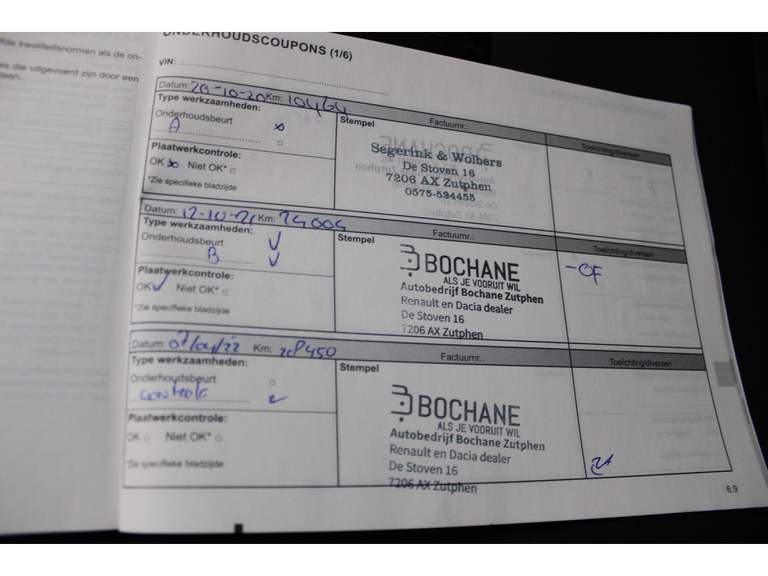 rde kwaliteitsnormen als de on-
es die uitgevoerd zijn door een
ONDERHOUDSCOUPONS (1/6)
VIN:
Datum: 28-10-20 Km:
Type werkzaamheden:
Onderhoudsbeurt
A
Plaatwerkcontrole:
OK Niet OK*
*Zie specifieke bladzijde
Stempel
Factuurnr.:
Segerink & Wolbers
De Stoven 16
7206 AX Zutphen
0575-534455
Toelichting/diversen
Datum: 12-10-21 Km: 24004
Type werkzaamheden:
Onderhoudsbeurt
B
Plaatwerkcontrole:
OK Niet OK*
*Zie specifieke bladzijde
Stempel
Factuurnr.:
BOCHANE
ALS JE VOORUIT WIL
Autobedrijf Bochane Zutphen
Renault en Dacia dealer
De Stoven 16
7206 AX Zutphen
Toelichting/diversen
-OF
Datum: Km:
Type werkzaamheden:
Onderhoudsbeurt
controle
Plaatwerkcontrole:
OK Niet OK*
*Zie specifieke bladzijde
Stempel
Factuurnr.:
BOCHANE
ALS JE VOORUIT WIL
Autobedrijf Bochane Zutphen
Renault en Dacia dealer
De Stoven 16
7206 AX Zutphen
Toelichting/diversen
6.9